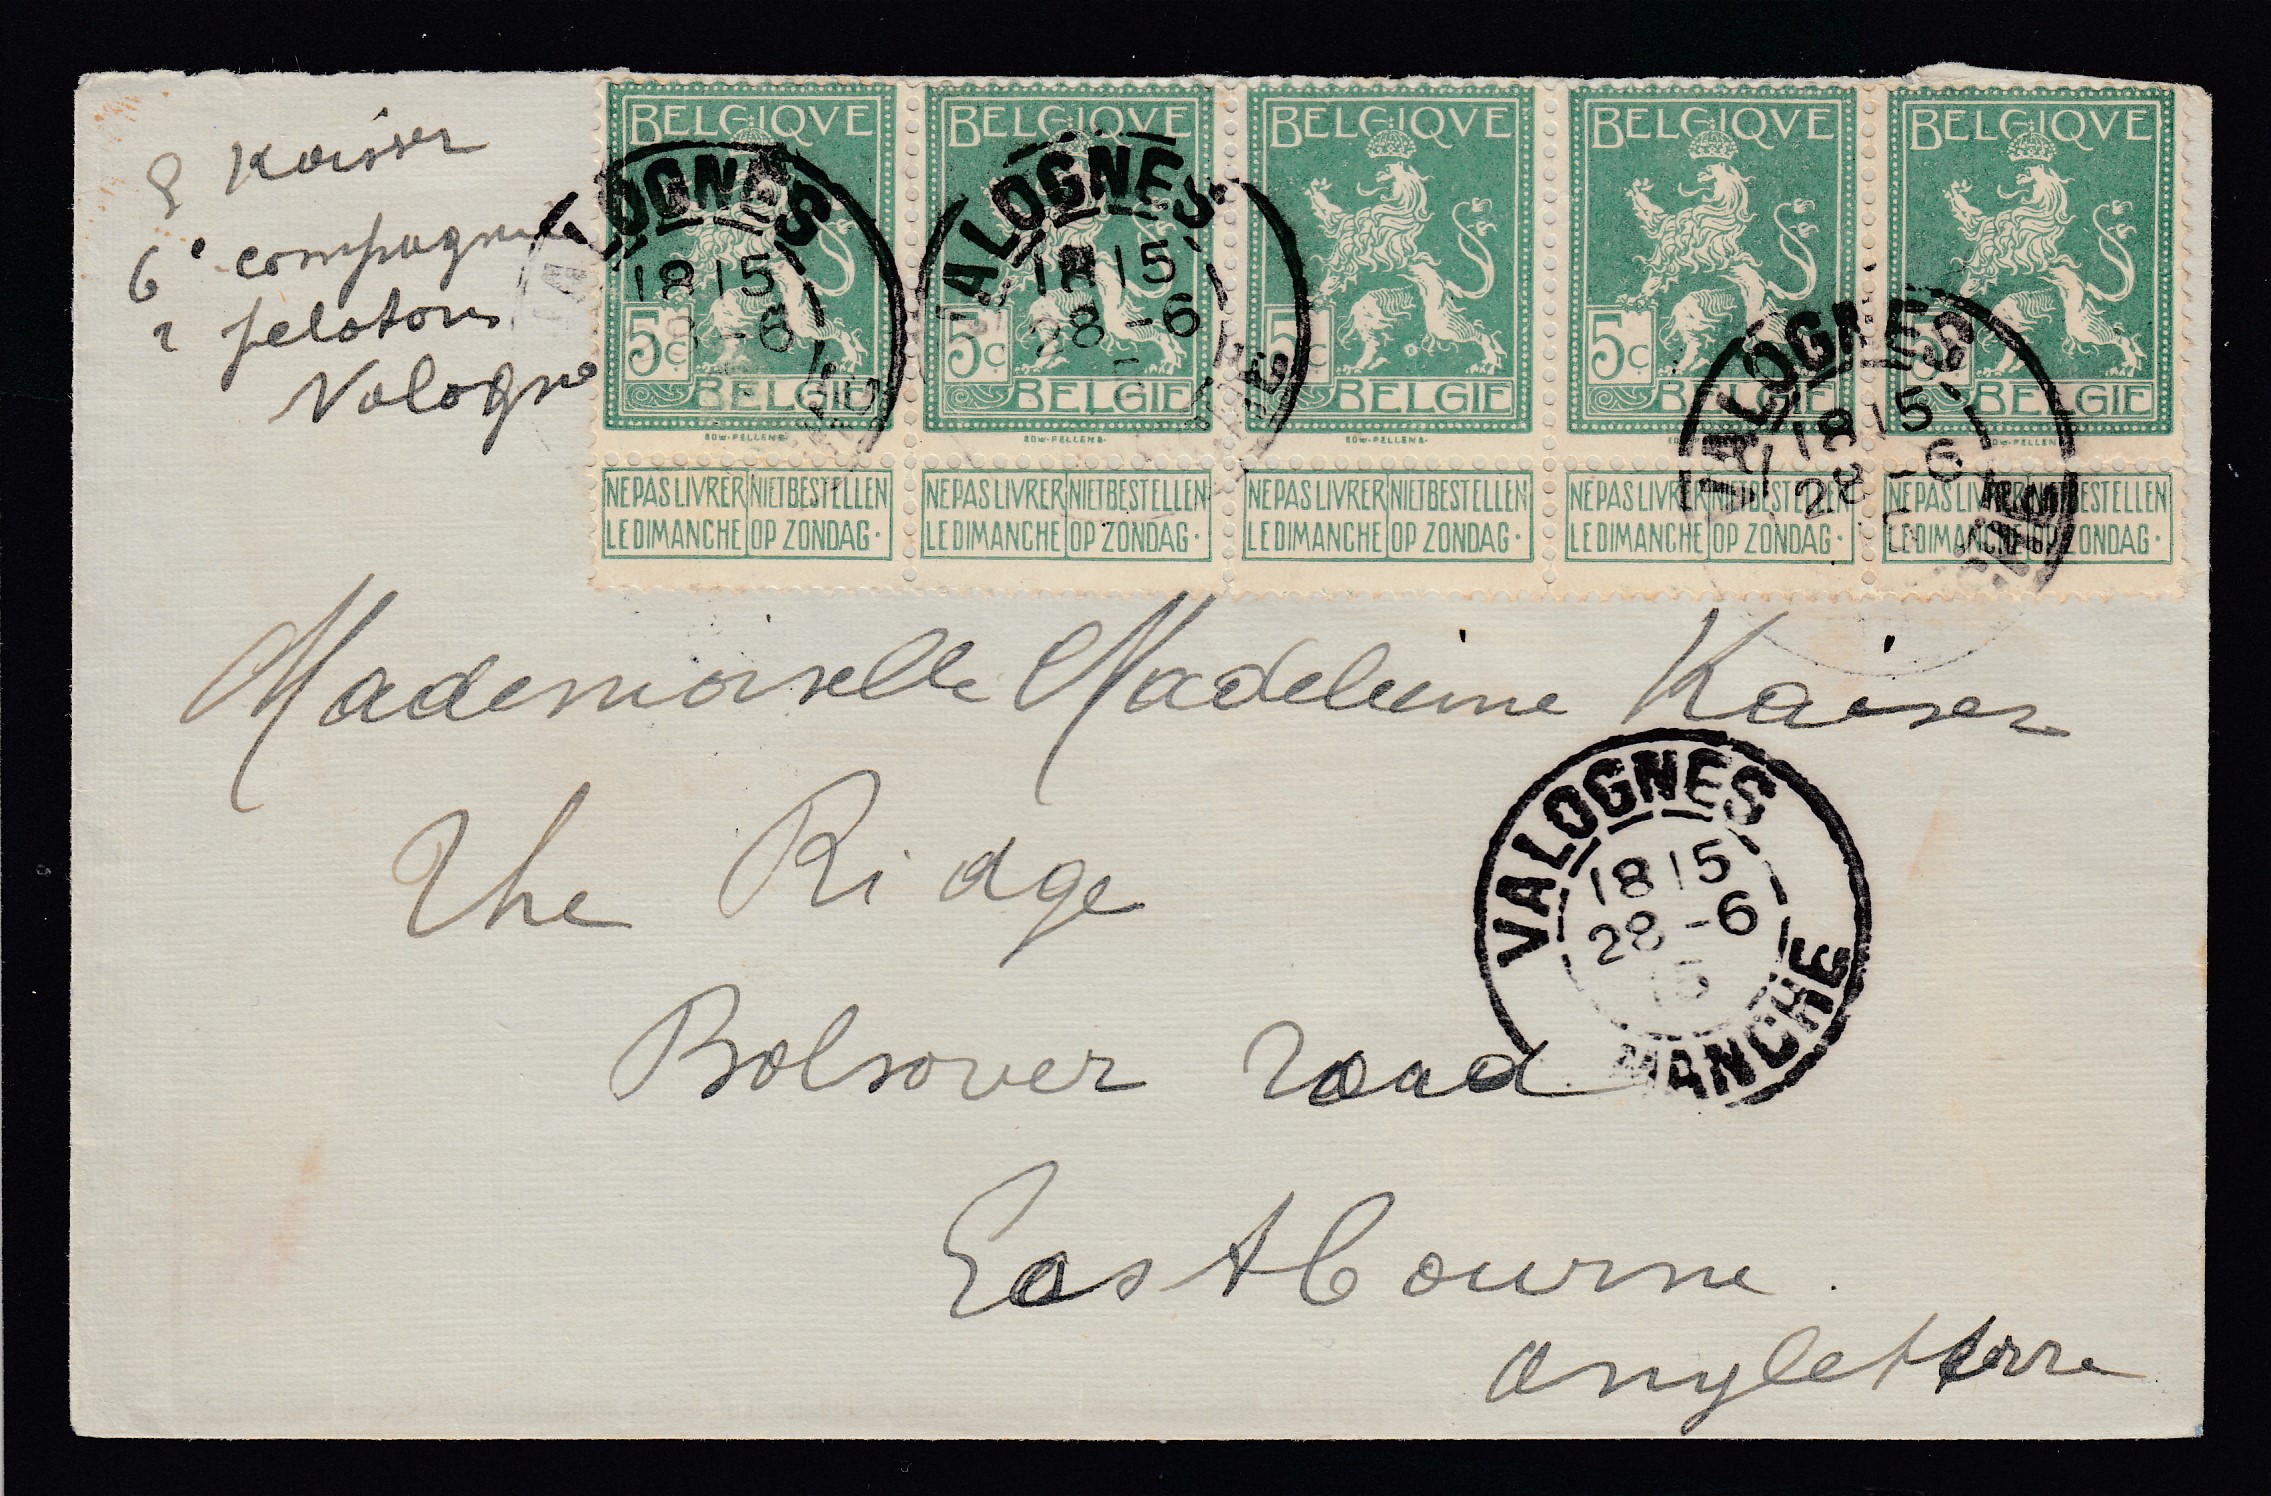 Kaiser
6e compagnie
2 peloton
Valogne
BELGIQVE BELGIQVE BELGIQVE BELGIQVE BELGIQVE
5c 5c 5c 5c 5c
BELGIE BELGIE BELGIE BELGIE BELGIE
EDW·PELLENS· EDW·PELLENS· EDW·PELLENS· EDW·PELLENS· EDW·PELLENS·
NE PAS LIVRER NIET BESTELLEN NE PAS LIVRER NIET BESTELLEN NE PAS LIVRER NIET BESTELLEN NE PAS LIVRER NIET BESTELLEN NE PAS LIVRER NIET BESTELLEN
LE DIMANCHE OP ZONDAG· LE DIMANCHE OP ZONDAG· LE DIMANCHE OP ZONDAG· LE DIMANCHE OP ZONDAG· LE DIMANCHE OP ZONDAG·
VALOGNES
1815
28-6
VALOGNES
1815
28-6
VALOGNES
1815
28-6
Mademoiselle Madeleine Kaiser
The Ridge
Bolsover road
Eastbourne.
Angleterre
VALOGNES
1815
28-6
15
MANCHE